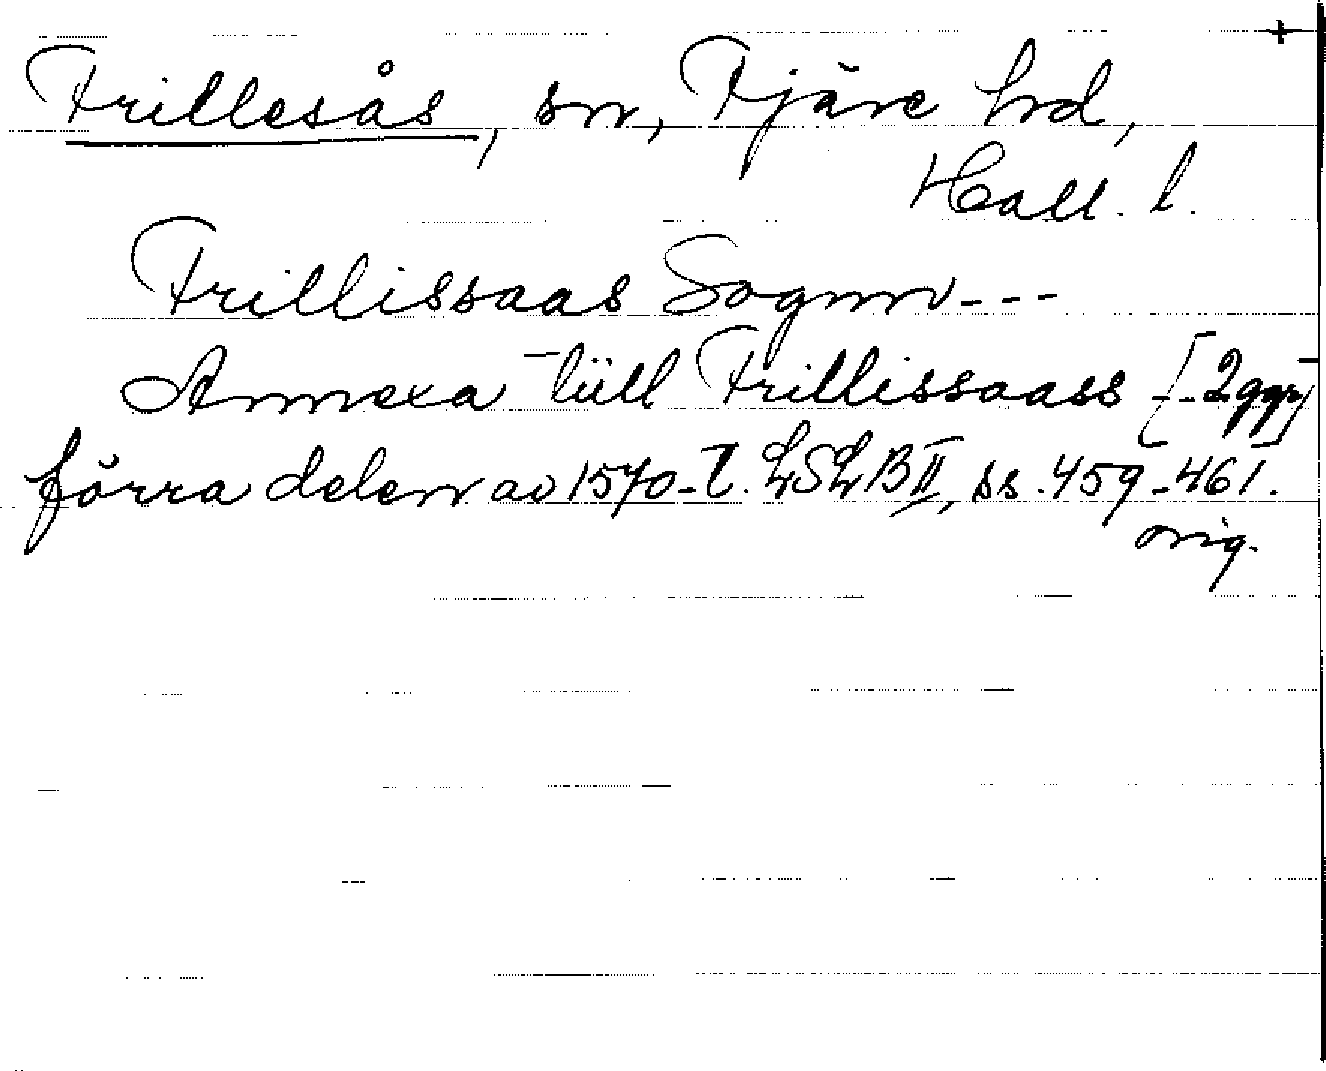 +
Frillesås, sn, Fjäre hd,
Hall. l.
Frillissaas Sognn ---
Annexa tüll Frillissaass [-2ggr-]
förra delen av 1570-t. LSLB II, ss. 459-461.
orig.